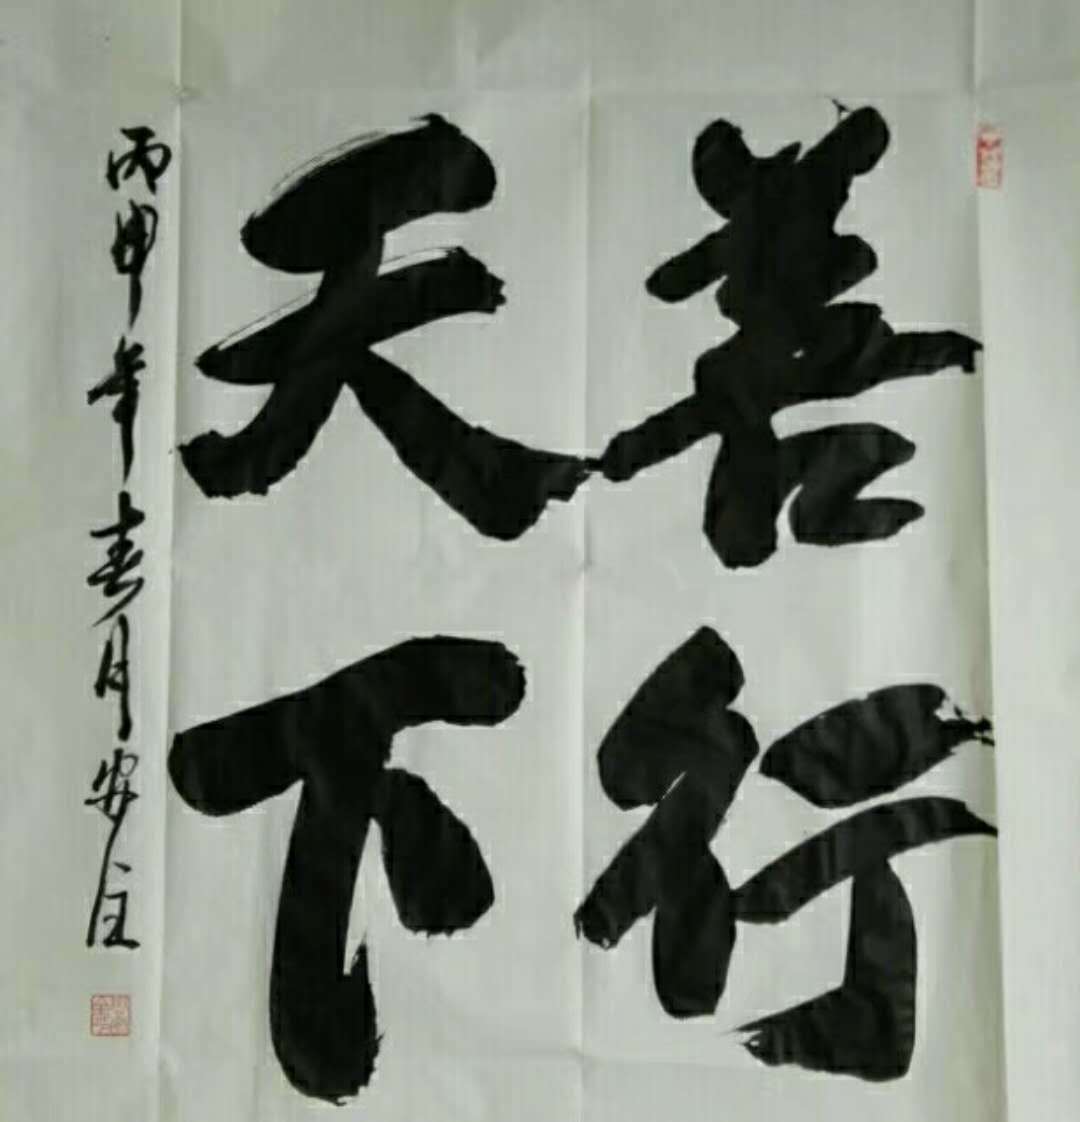 善行
天下
丙申年春月安住